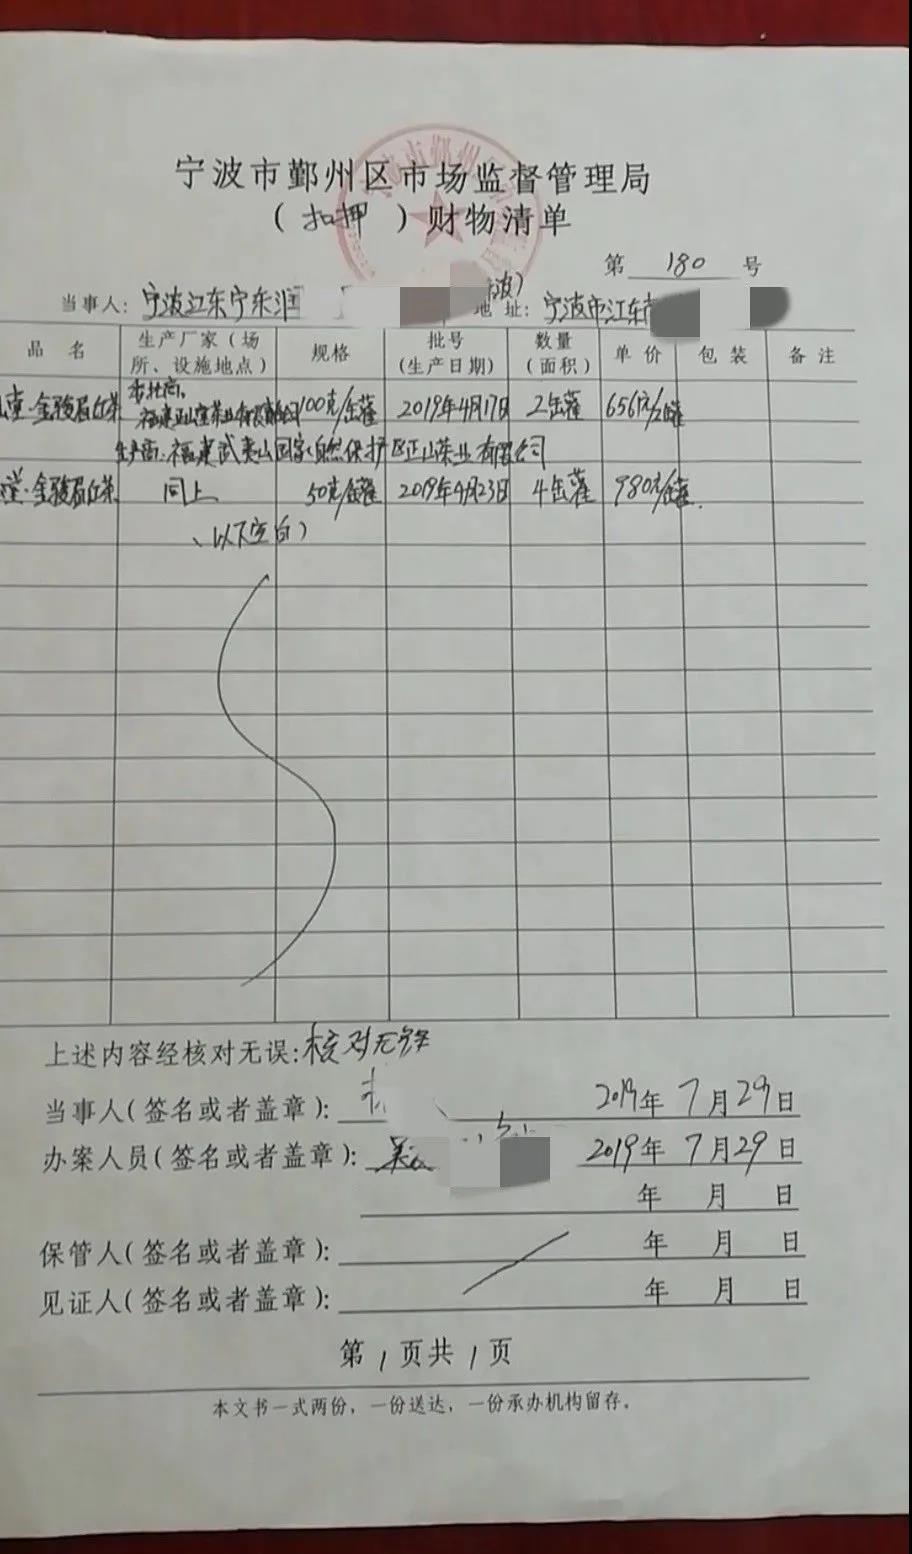 宁波市鄞州区市场监督管理局
(扣押)财物清单
第 180 号
当事人: 宁波江东宁东润 波) 地址: 宁波市江东
品名 生产厂家(场所、设施地点) 规格 批号(生产日期) 数量(面积) 单价 包装 备注
堂·金骏眉红茶 委托商: 福建正山堂茶业有限公司 100克/罐 2019年4月17日 2罐 656元/罐
生产商: 福建武夷山国家自然保护区正山茶业有限公司
堂·金骏眉红茶 同上 50克/罐 2019年4月23日 4罐 980元/罐
(以下空白)
上述内容经核对无误: 核对无误
当事人(签名或者盖章): 2019年 7月29日
办案人员(签名或者盖章): 2019年 7月29日
年 月 日
保管人(签名或者盖章): 年 月 日
见证人(签名或者盖章): 年 月 日
第1页共1页
本文书一式两份，一份送达，一份承办机构留存。